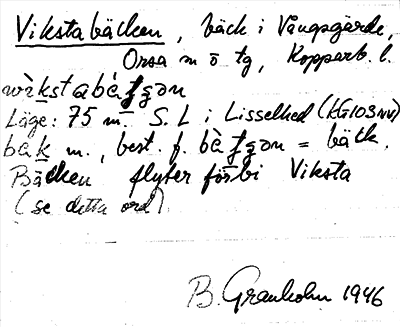 Vikstabäcken, bäck i Vångsgärde,
Orsa sn ö tg, Kopparb. l.
Läge: 75 m. S. L i Lisselhed (kG103NV)
bäk m., best. f. = bäck.
Bäcken flyter förbi Viksta
(se detta ord)
B. Granholm 1946